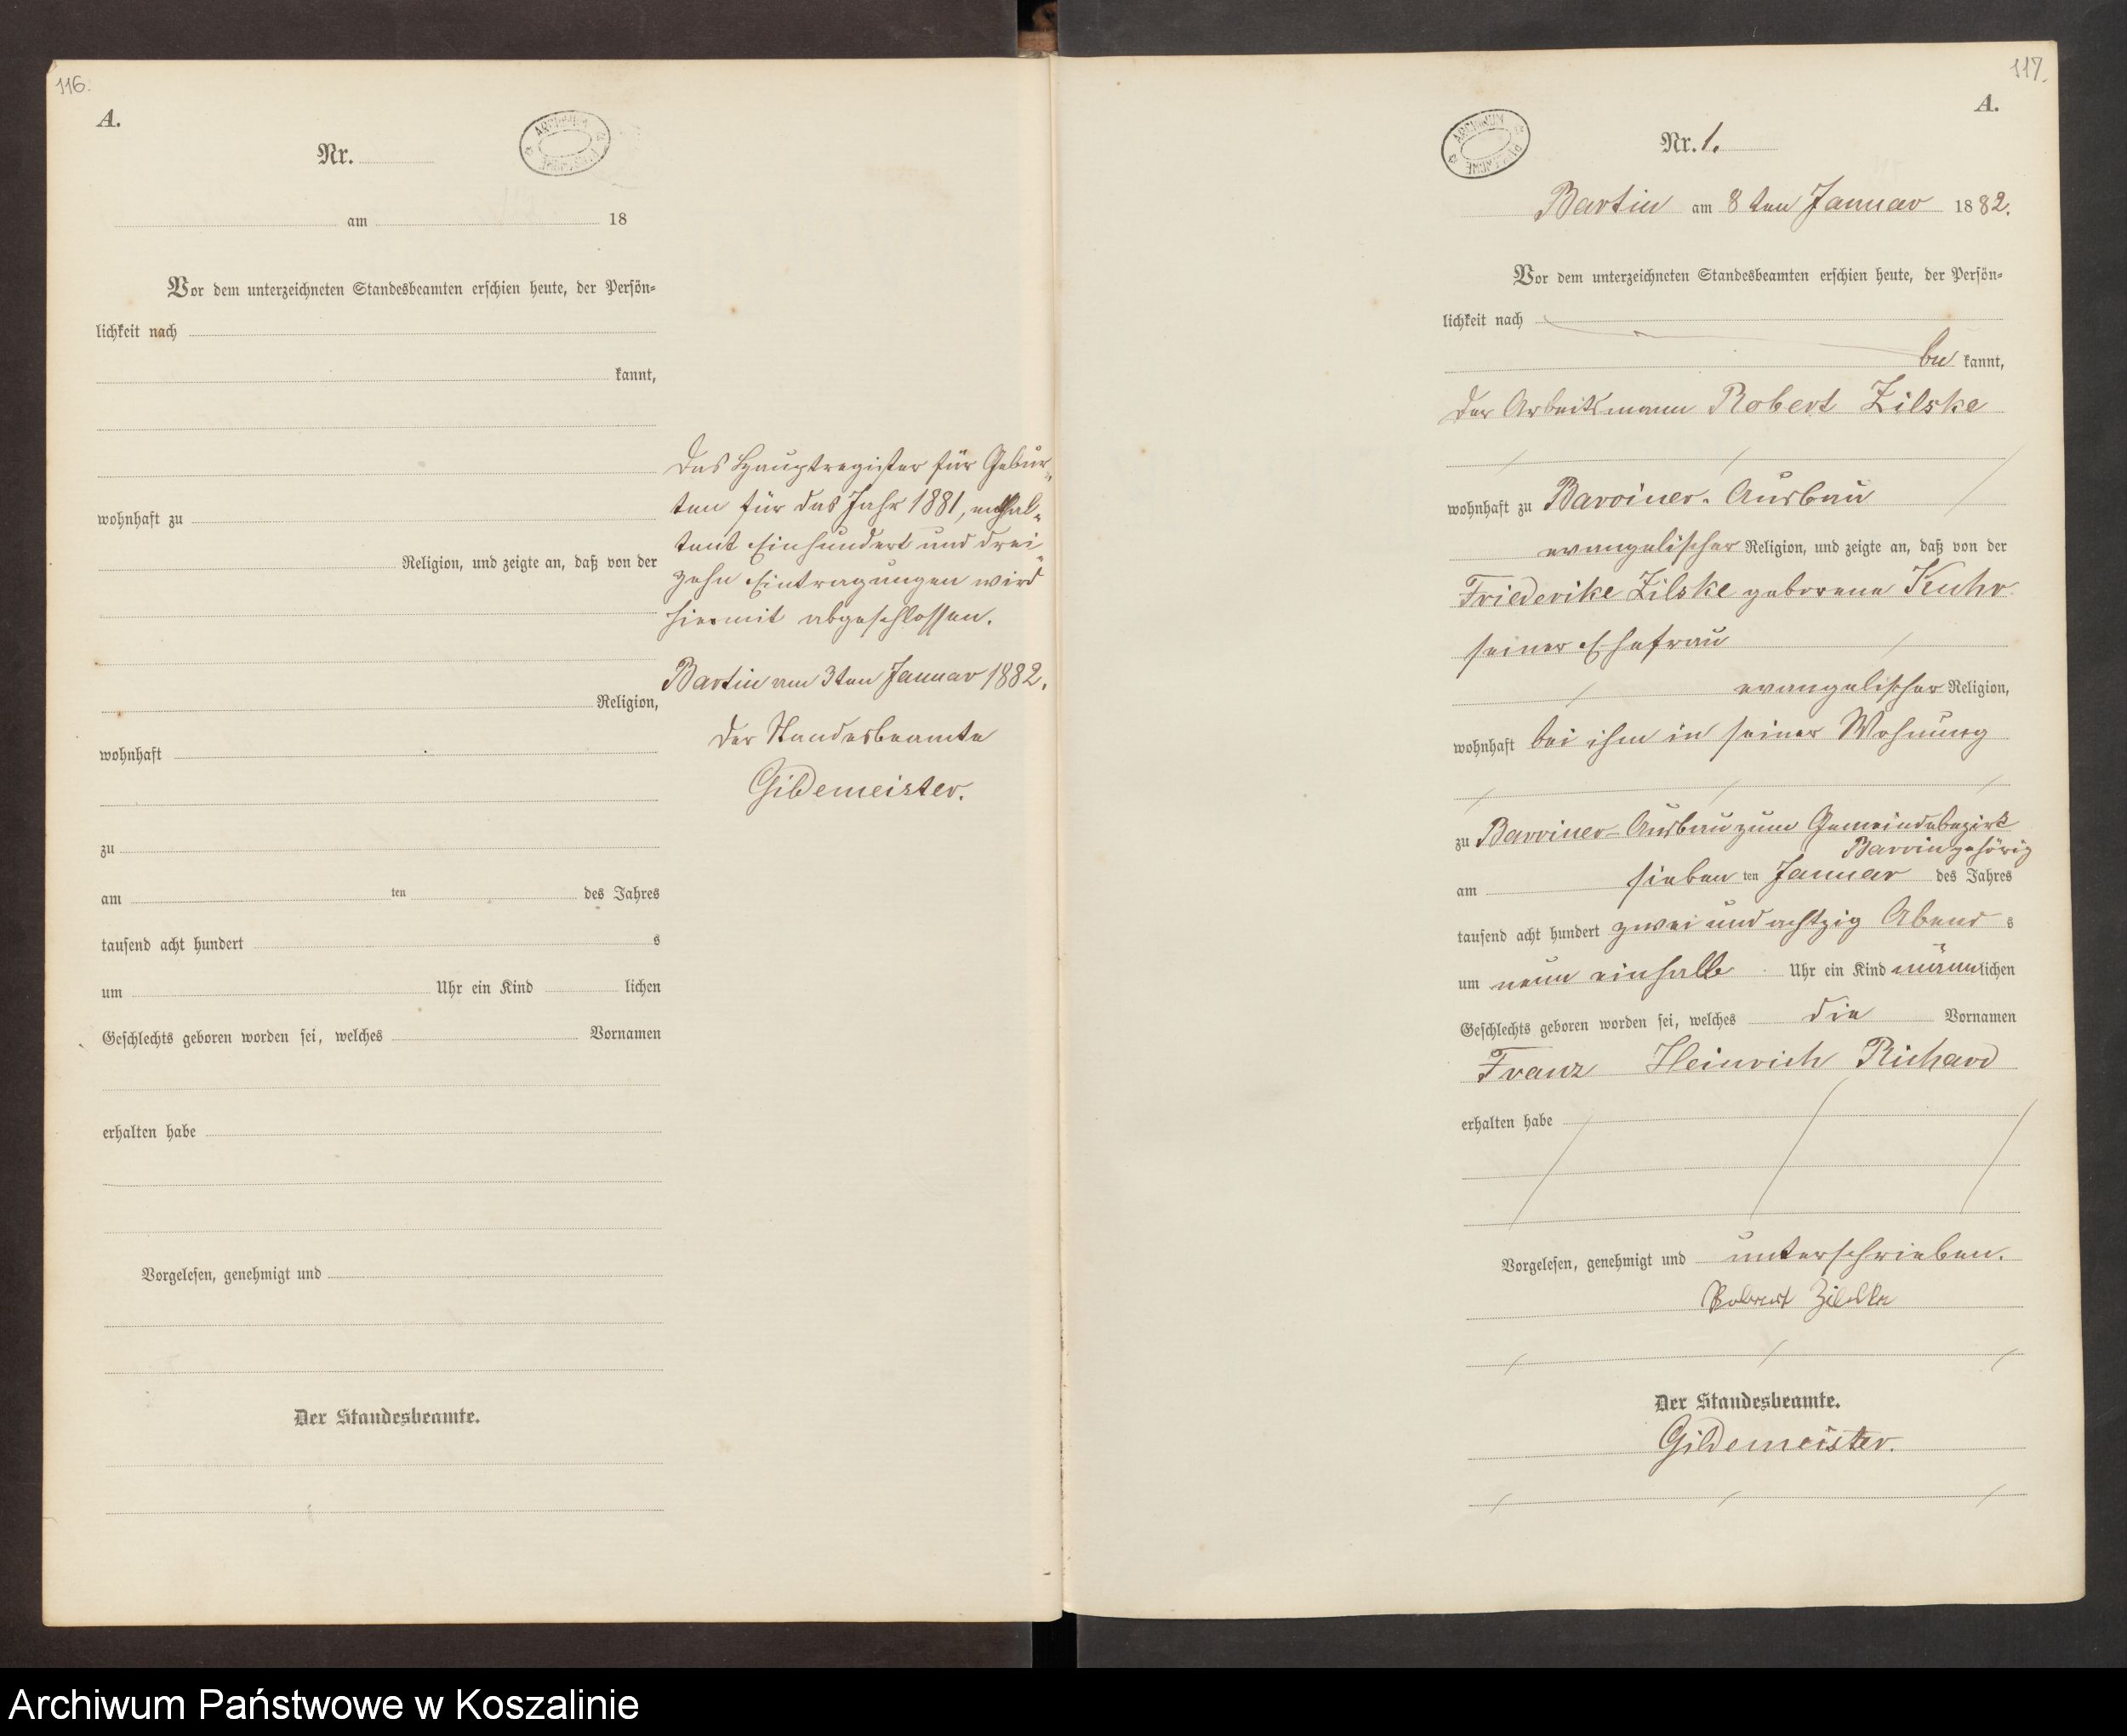 116.
A.
ARCHIWUM PAŃSTWOWE
Nr.
am 18
Vor dem unterzeichneten Standesbeamten erschien heute, der Persön-
lichkeit nach
kannt,
wohnhaft zu
Religion, und zeigte an, daß von der
Religion,
wohnhaft
zu
am ten des Jahres
tausend acht hundert s
um Uhr ein Kind lichen
Geschlechts geboren worden sei, welches Vornamen
erhalten habe
Vorgelesen, genehmigt und
Der Standesbeamte.
Das Hauptregister für Gebur-
ten für das Jahr 1881, enthal-
tend Einhundert und drei-
zehn Eintragungen wird
hiermit abgeschlossen.
Bartin am 3ten Januar 1882.
Der Standesbeamte
Gildemeister.
117.
A.
ARCHIWUM PAŃSTWOWE
Nr. 1.
Bartin am 8ten Januar 1882.
Vor dem unterzeichneten Standesbeamten erschien heute, der Persön-
lichkeit nach
be kannt,
der Arbeitsmann Robert Zilske
wohnhaft zu Barviner-Ausbau
evangelischer Religion, und zeigte an, daß von der
Friederike Zilske geborene Kuhr
seiner Ehefrau
evangelischer Religion,
wohnhaft bei ihm in seiner Wohnung
zu Barviner-Ausbau zum Gemeindebezirk
Barvin gehörig
am sieben ten Januar des Jahres
tausend acht hundert zwei und achtzig Abend s
um neun einhalb Uhr ein Kind männlichen
Geschlechts geboren worden sei, welches die Vornamen
Franz Heinrich Richard
erhalten habe
Vorgelesen, genehmigt und unterschrieben.
Robert Zilske
Der Standesbeamte.
Gildemeister.
Archiwum Państwowe w Koszalinie